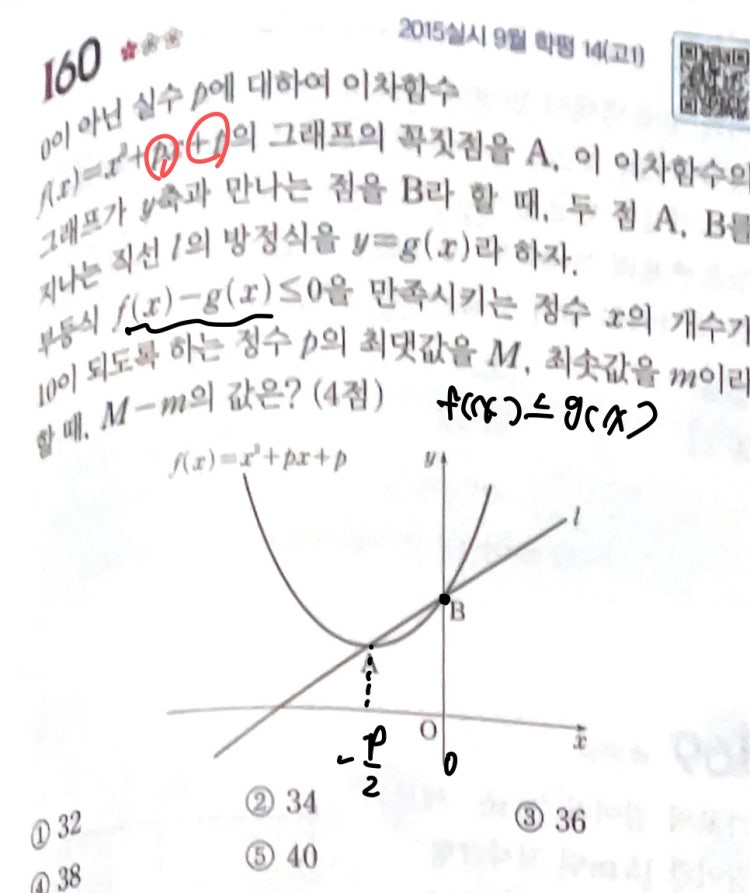 2015실시 9월 학평 14(고1)
I60
0이 아닌 실수 p에 대하여 이차함수
f(x)=x²+px+p의 그래프의 꼭짓점을 A, 이 이차함수의
그래프가 y축과 만나는 점을 B라 할 때, 두 점 A, B를
지나는 직선 l의 방정식을 y=g(x)라 하자.
부등식 f(x)-g(x)≤0을 만족시키는 정수 x의 개수가
10이 되도록 하는 정수 p의 최댓값을 M, 최솟값을 m이라
할 때, M-m의 값은? (4점)
f(x)≤g(x)
f(x)=x²+px+p
y
l
B
A
O
x
-p/2
0
① 32
② 34
③ 36
④ 38
⑤ 40